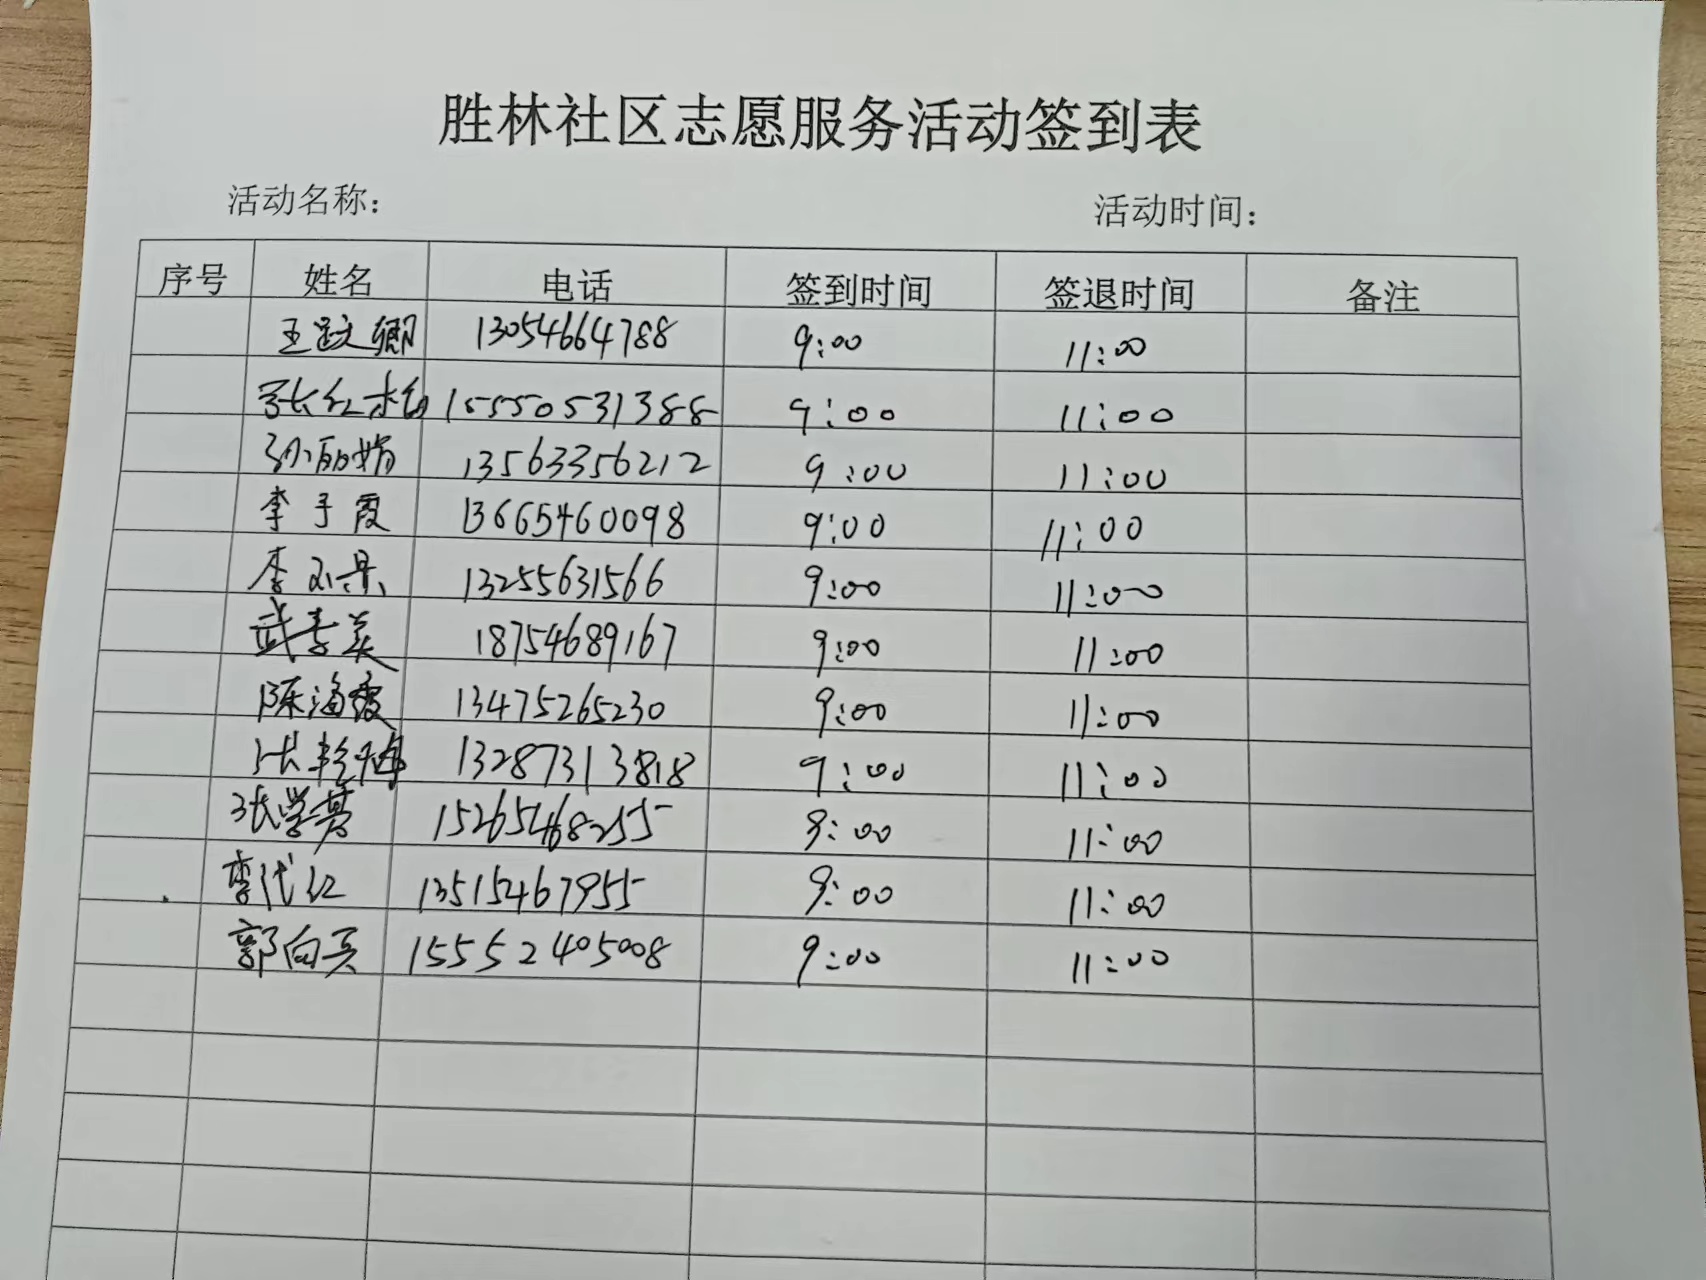 胜林社区志愿服务活动签到表
活动名称： 活动时间：
序号 姓名 电话 签到时间 签退时间 备注
王 13054664788 9:00 11:00
张红梅 15550531388 9:00 11:00
孙丽娟 13563356212 9:00 11:00
李于霞 13665460098 9:00 11:00
李 13255631566 9:00 11:00
武秀美 18754689167 9:00 11:00
陈海霞 13475265230 9:00 11:00
张 13287313818 9:00 11:00
张学 15265468255 9:00 11:00
李代红 13515467955 9:00 11:00
郭向兵 15552405008 9:00 11:00